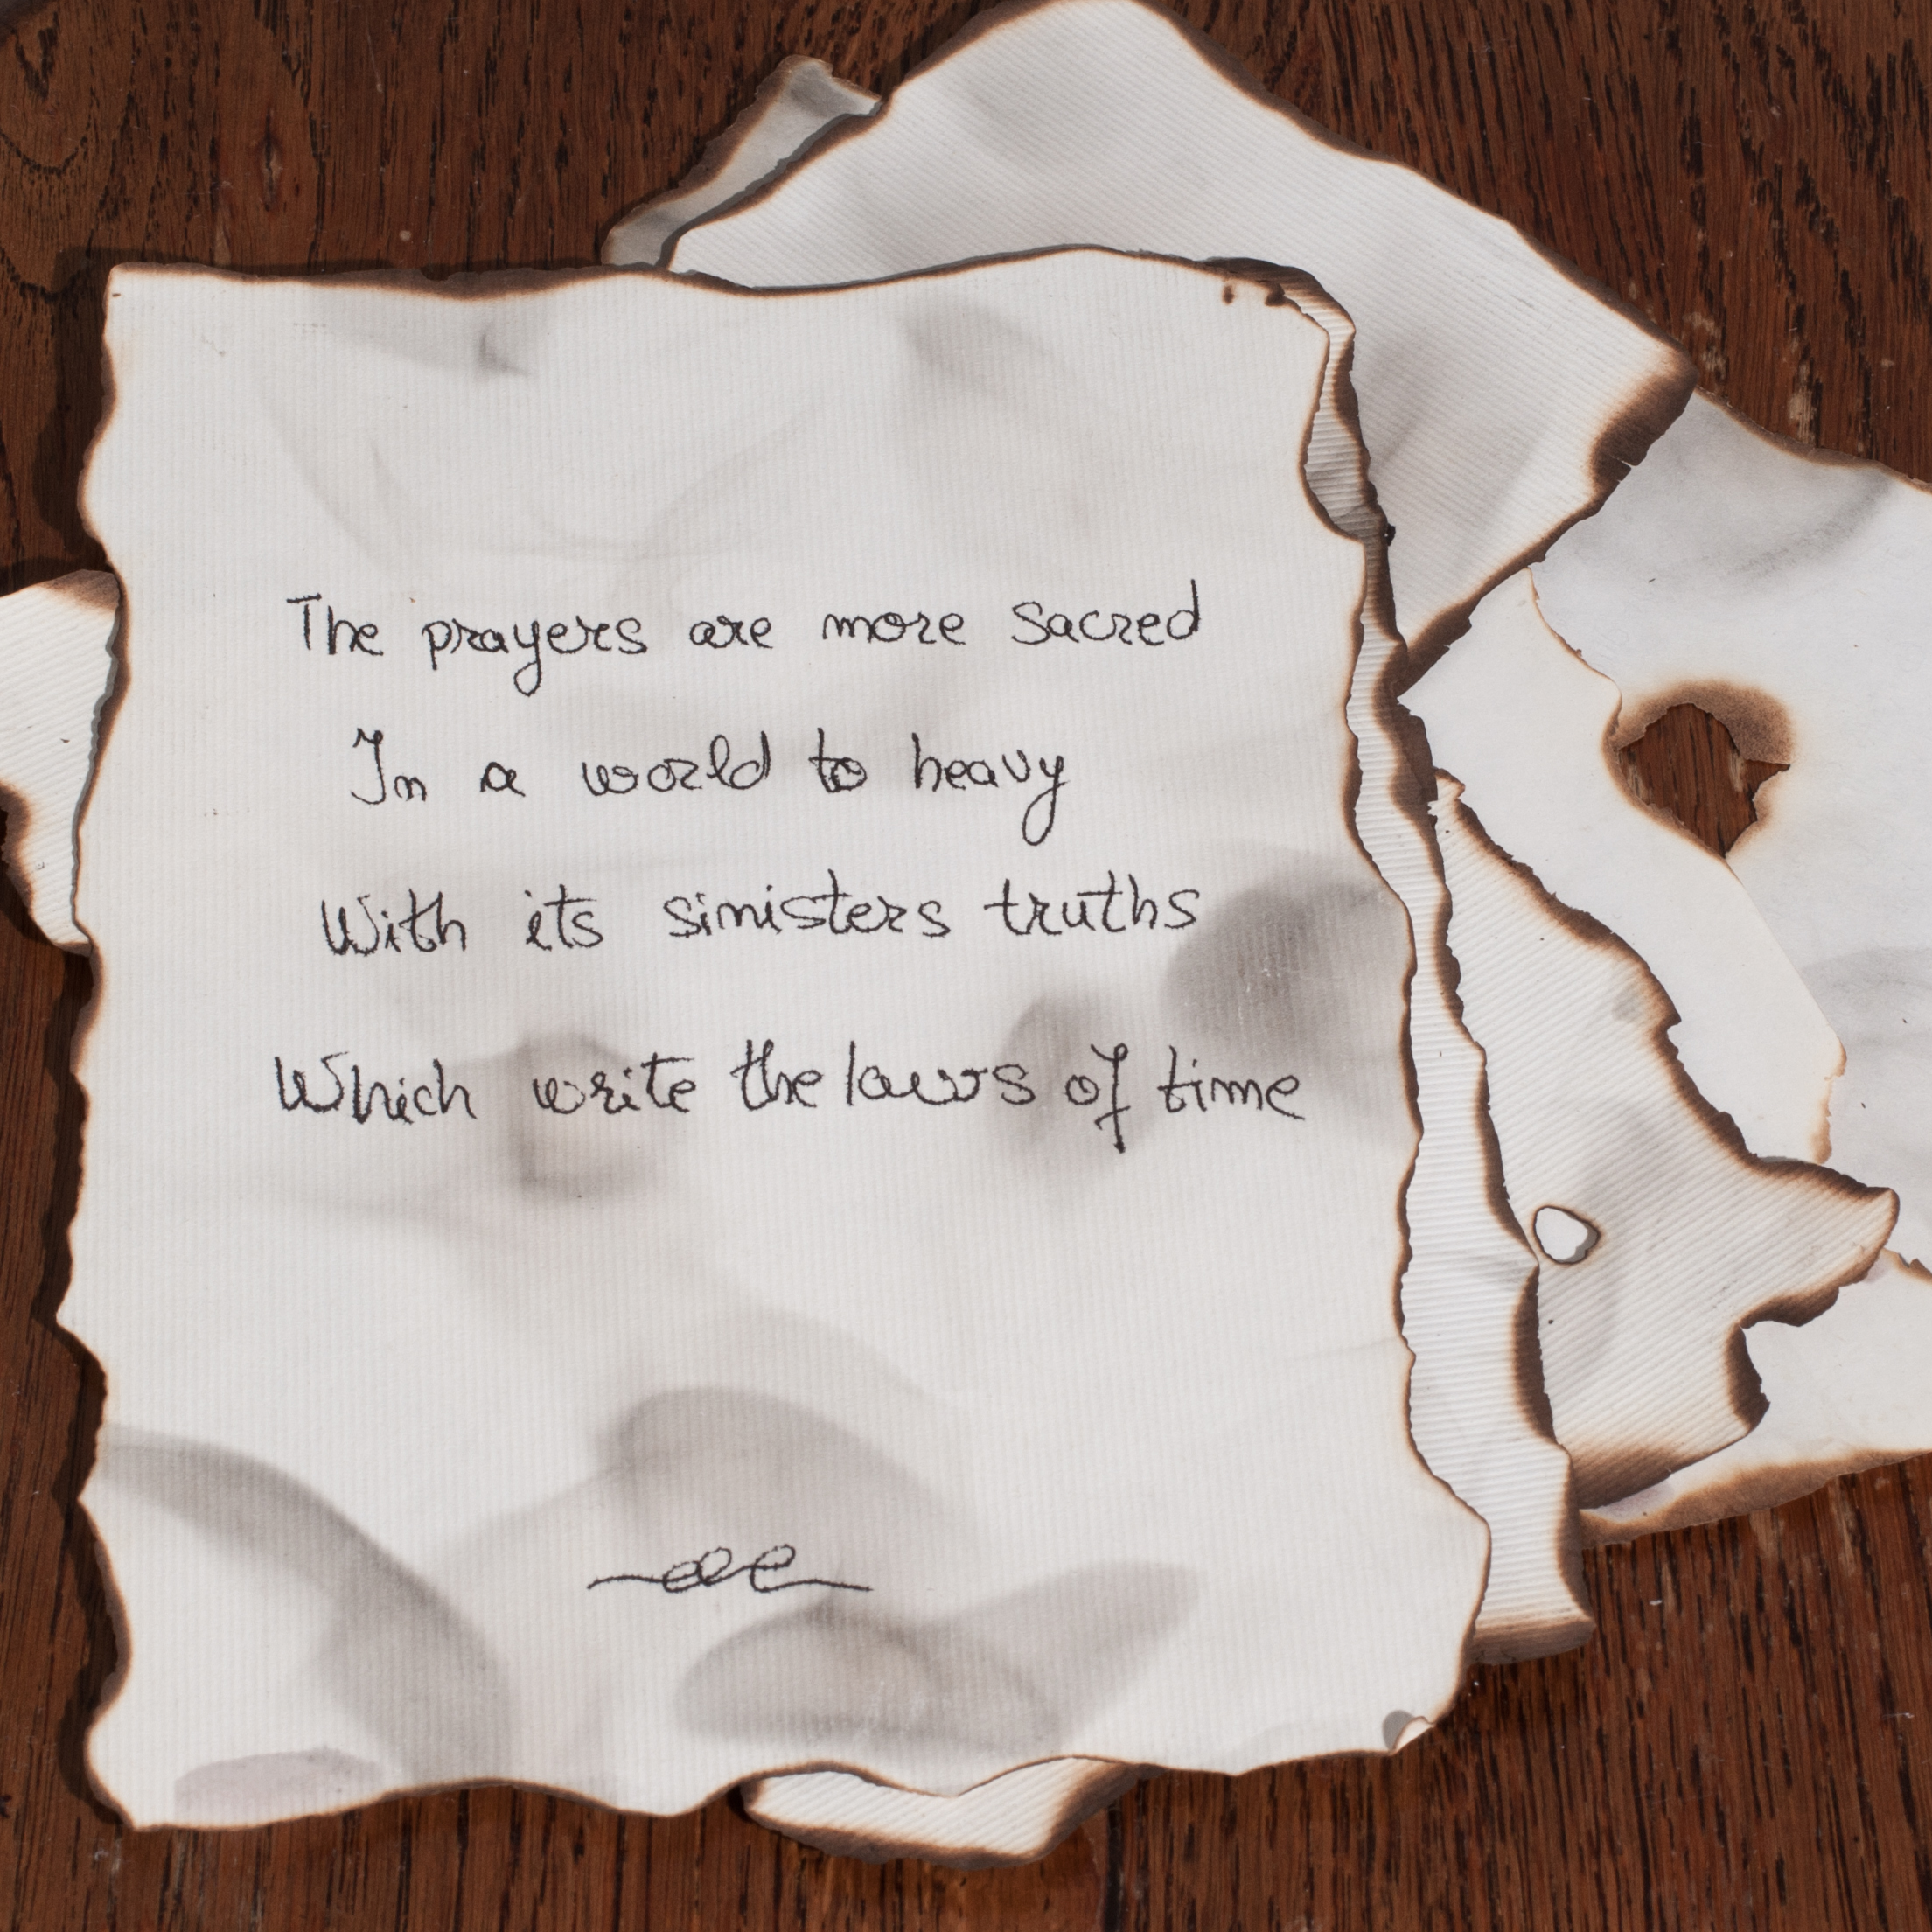 The prayers are more sacred
In a world to heavy
With its sinisters truths
Which write the laws of time